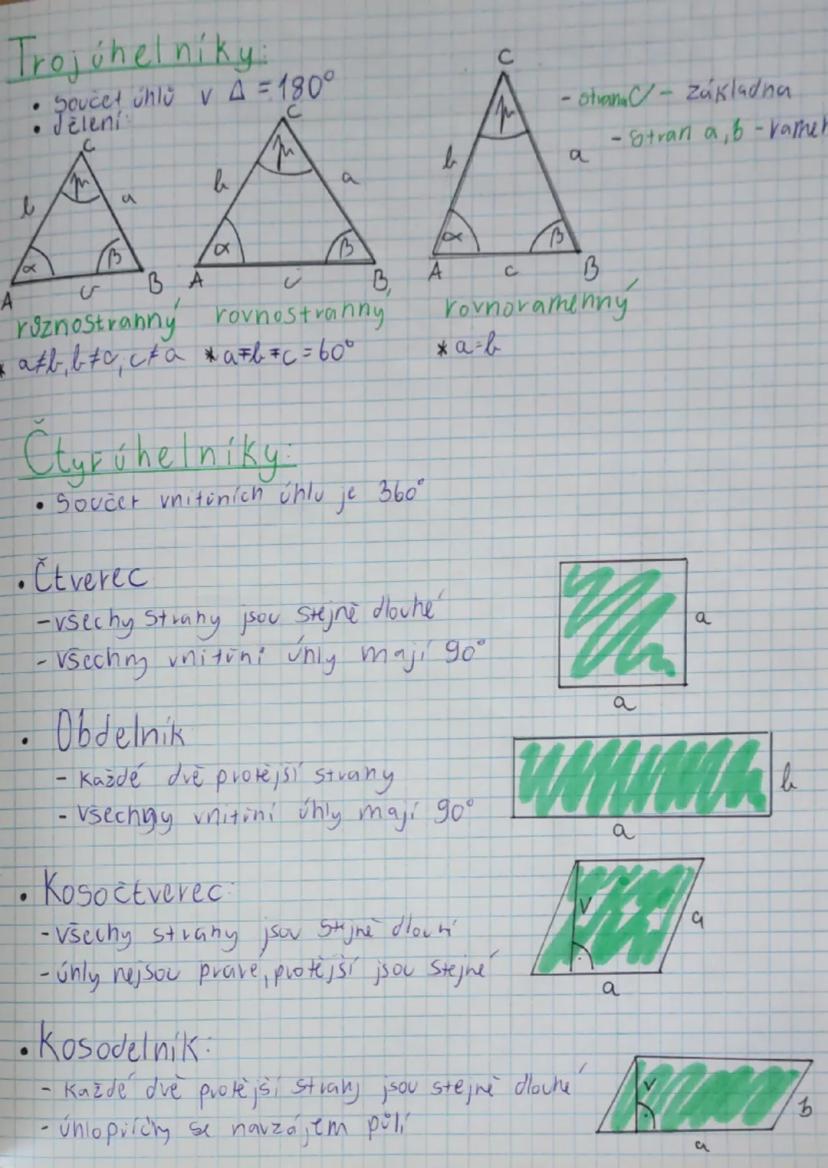 Trojúhelníky:
• součet úhlů v Δ = 180°
• dělení:
C
b
a
μ
α
β
A
c
B
C
b
a
μ
α
β
A
c
B
C
b
a
μ
α
β
A
c
B
- strana C - základna
- stran a, b - ramen
různostranný
rovnostranný
rovnoramenný
* a≠b, b≠c, c≠a
* a=b=c=60°
* a=b
Čtyrúhelníky:
• Součet vnitřních úhlu je 360°
• Čtverec
- všechy strany jsou stejně dlouhé
- všechny vnitřní úhly mají 90°
a
a
• Obdelník
- každé dvě protější strany
- všechny vnitřní úhly mají 90°
b
a
• Kosočtverec:
- všechy strany jsou stejně dlouhí
- úhly nejsou pravé, protější jsou stejné
v
a
a
• Kosodelník:
- každé dvě protější strany jsou stejně dlouhé
- úhlopříčky se navzájem půlí
v
b
a